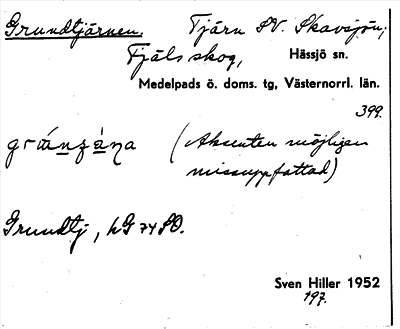 Grundtjärnen. Tjärn SV. Skavsjön;
Fjäls skog, Hässjö sn.
Medelpads ö. doms. tg, Västernorrl. län.
399.
(Aksenten möjligen
missuppfattad)
Grundtj, hG 74 SO.
Sven Hiller 1952
197.